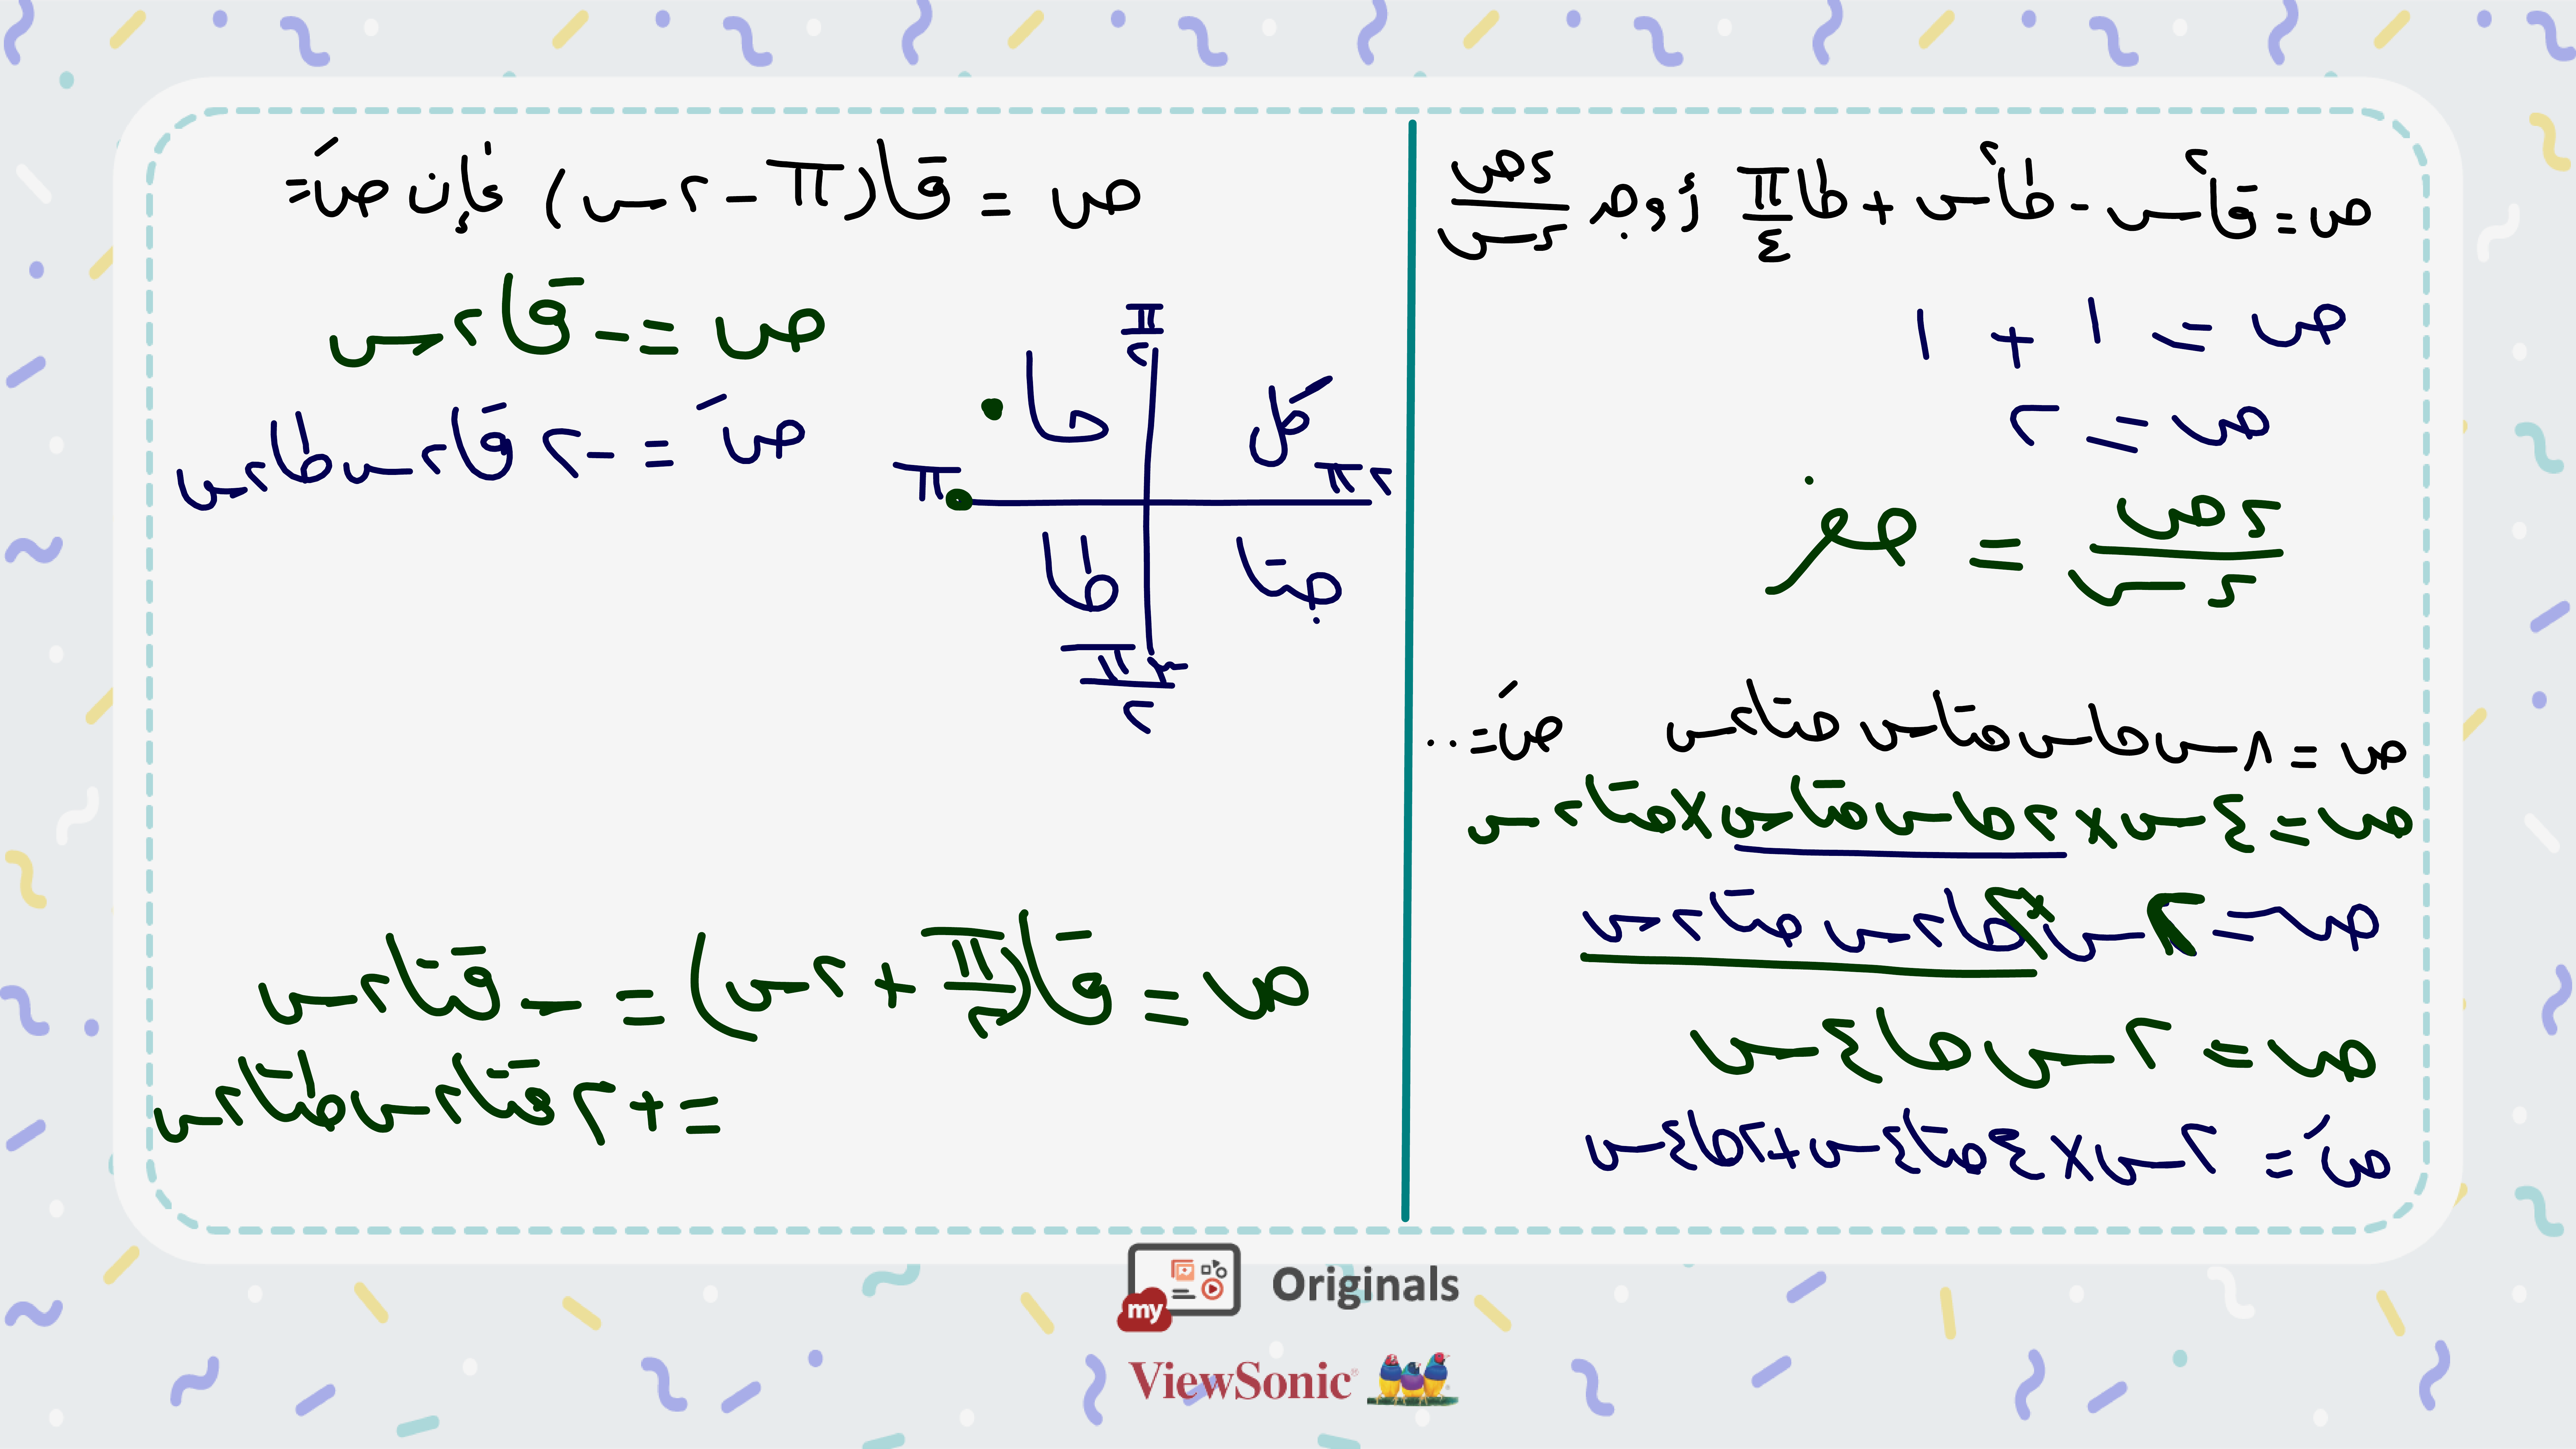 ص = قا²س - طا²س + طا π/٤ أوجد ءص/ءس
ص = ١ + ١
ص = ٢
ءص/ءس = صفر
ص = ٨س حاس حتاس حتا٢س صَ = ..
ص = ٤س × ٢حاس حتاس × حتا٢س
ص = ٢س × ٢حا٢س حتا٢س
ص = ٢س حا٤س
صَ = ٢س × ٤حتا٤س + ٢حا٤س
ص = قا(π - ٢س) فإن صَ =
ص = - قا٢س
صَ = - ٢قا٢س طا٢س
π/٢
حا كل
π ٢π
طا جتا
٣π/٢
ص = قا(π/٢ + ٢س) = - قتا٢س
= + ٢قتا٢س طتا٢س
my Originals
ViewSonic®